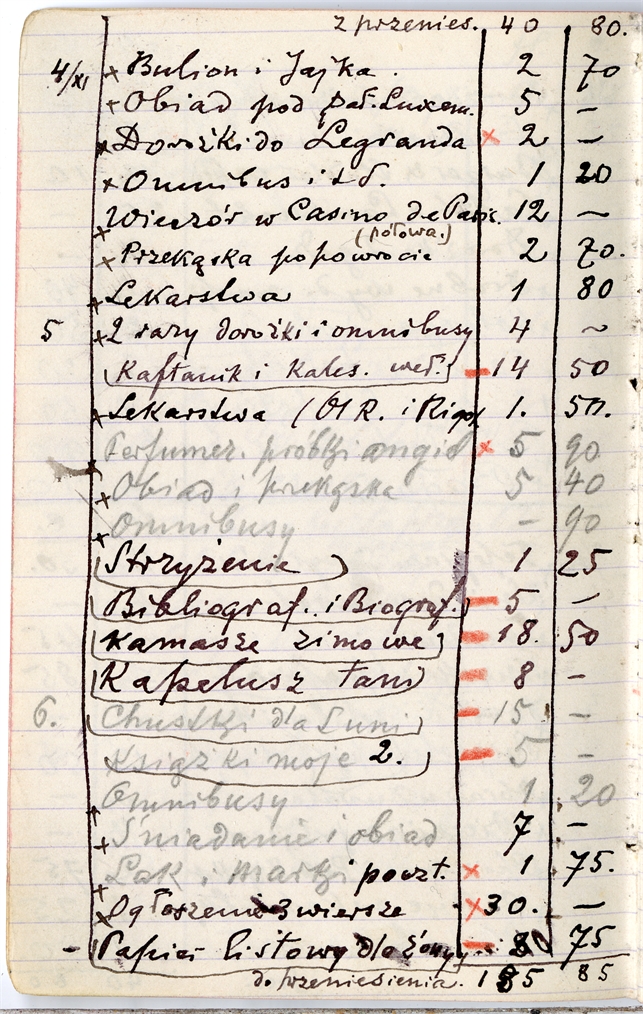 z przenies. 40 80.
4/XI × Bulion i Jajka. 2 70
× Obiad pod Pał. Luxem. 5 –
× Dorożki do Legranda × 2 –
× Omnibus i t d. 1 20
× Wieczór w Casino de Paris. 12 ~
(połowa.)
× Przekąska po powrocie 2 70.
× Lekarstwa 1 80
5 × 2 razy dorożki i omnibusy 4 ~
Kaftanik i Kales. weł. – 14 50
× Lekarstwa ( i Rigo) 1. 50.
× Perfumer. próbki angiel × 5 90
× Obiad i przekąska 5 40
× Omnibusy – 90
Strzyżenie 1 25
Bibliograf. i Biograf. – 5 –
Kamasze zimowe – 18. 50
Kapelusz tani – 8 –
6. Chustki dla Luni – 15 –
Książki moje 2. – 5 –
× Omnibusy 1 20
× Śniadanie i obiad 7 –
× Lak i marki poczt. × 1 75.
× Ogłoszenie 3 wiersze × 30. –
– Papier listowy dla żony – 75
do przeniesienia. 185 85